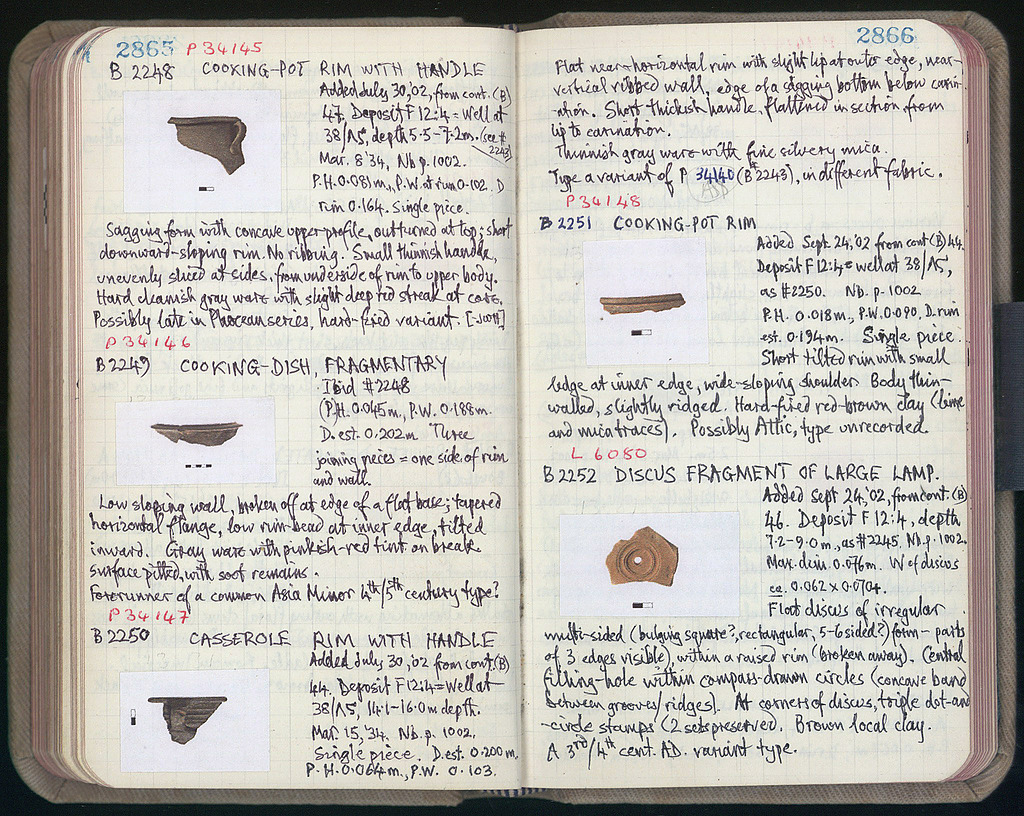 2865 P 34145
B 2248 COOKING-POT RIM WITH HANDLE
Added July 30,'02, from cont. (B)
47, Deposit F 12:4 = Well at
38/ΛΣ, depth 5.5-7.2m. (see #
2243)
Mar. 8 '34, Nb. p. 1002.
P.H. 0.081m., P.W. at rim 0.102. D
rim 0.164. Single piece.
Sagging form with concave upper profile, outturned at top; short
downward-sloping rim. No ribbing. Small thinnish handle,
unevenly sliced at sides, from underside of rim to upper body.
Hard cleanish gray ware with slight deep red streak at core.
Possibly late in Phocean series, hard-fired variant.
P 34146
B 2249 COOKING-DISH, FRAGMENTARY
Ibid #2248
(P)H. 0.045m., P.W. 0.188m.
D. est. 0.202m. Three
joining pieces = one side of rim
and wall.
Low sloping wall, broken off at edge of a flat base; tapered
horizontal flange, low rim-bead at inner edge, tilted
inward. Gray ware with pinkish-red tint on break
surface pitted, with soot remains.
Forerunner of a common Asia Minor 4th/5th century type?
P 34147
B 2250 CASSEROLE RIM WITH HANDLE
Added July 30,'02 from cont. (B)
44, Deposit F 12:4 = Well at
38/ΛΣ, 14.1-16.0m depth.
Mar. 15,'34. Nb. p. 1002.
Single piece. D. est. 0.200 m.
P.H. 0.064m., P.W. 0.103.
2866
Flat near-horizontal rim with slight lip at outer edge, near-
vertical ribbed wall, edge of a sagging bottom below carin-
ation. Short thickish handle, flattened in section, from
lip to carination.
Thinnish gray ware with fine silvery mica.
Type a variant of P 34140 (B#2243), in different fabric.
P 34148
B 2251 COOKING-POT RIM
Added Sept. 24,'02 from cont (B) 44.
Deposit F 12:4 = well at 38/ΛΣ,
as #2250. Nb. p. 1002
P.H. 0.018m., P.W. 0.090, D. rim
est. 0.194m. Single piece.
Short tilted rim with small
ledge at inner edge, wide-sloping shoulder. Body thin-
walled, slightly ridged. Hard-fired red-brown clay (lime
and mica traces). Possibly Attic, type unrecorded.
L 6080
B 2252 DISCUS FRAGMENT OF LARGE LAMP.
Added Sept 24,'02, from cont. (B)
46. Deposit F 12:4, depth
7.2-9.0m., as #2245, Nb. p. 1002.
Max. dim. 0.076m. W of discus
ca. 0.062 x 0.0704.
Flat discus of irregular
multi-sided (bulging square?, rectangular, 5-6 sided?) form - parts
of 3 edges visible), within a raised rim (broken away). Central
filling-hole within compass-drawn circles (concave band
between grooves/ridges). At corners of discus, triple dot-and
-circle stamps (2 sets preserved. Brown local clay.
A 3rd/4th cent. AD. variant type.